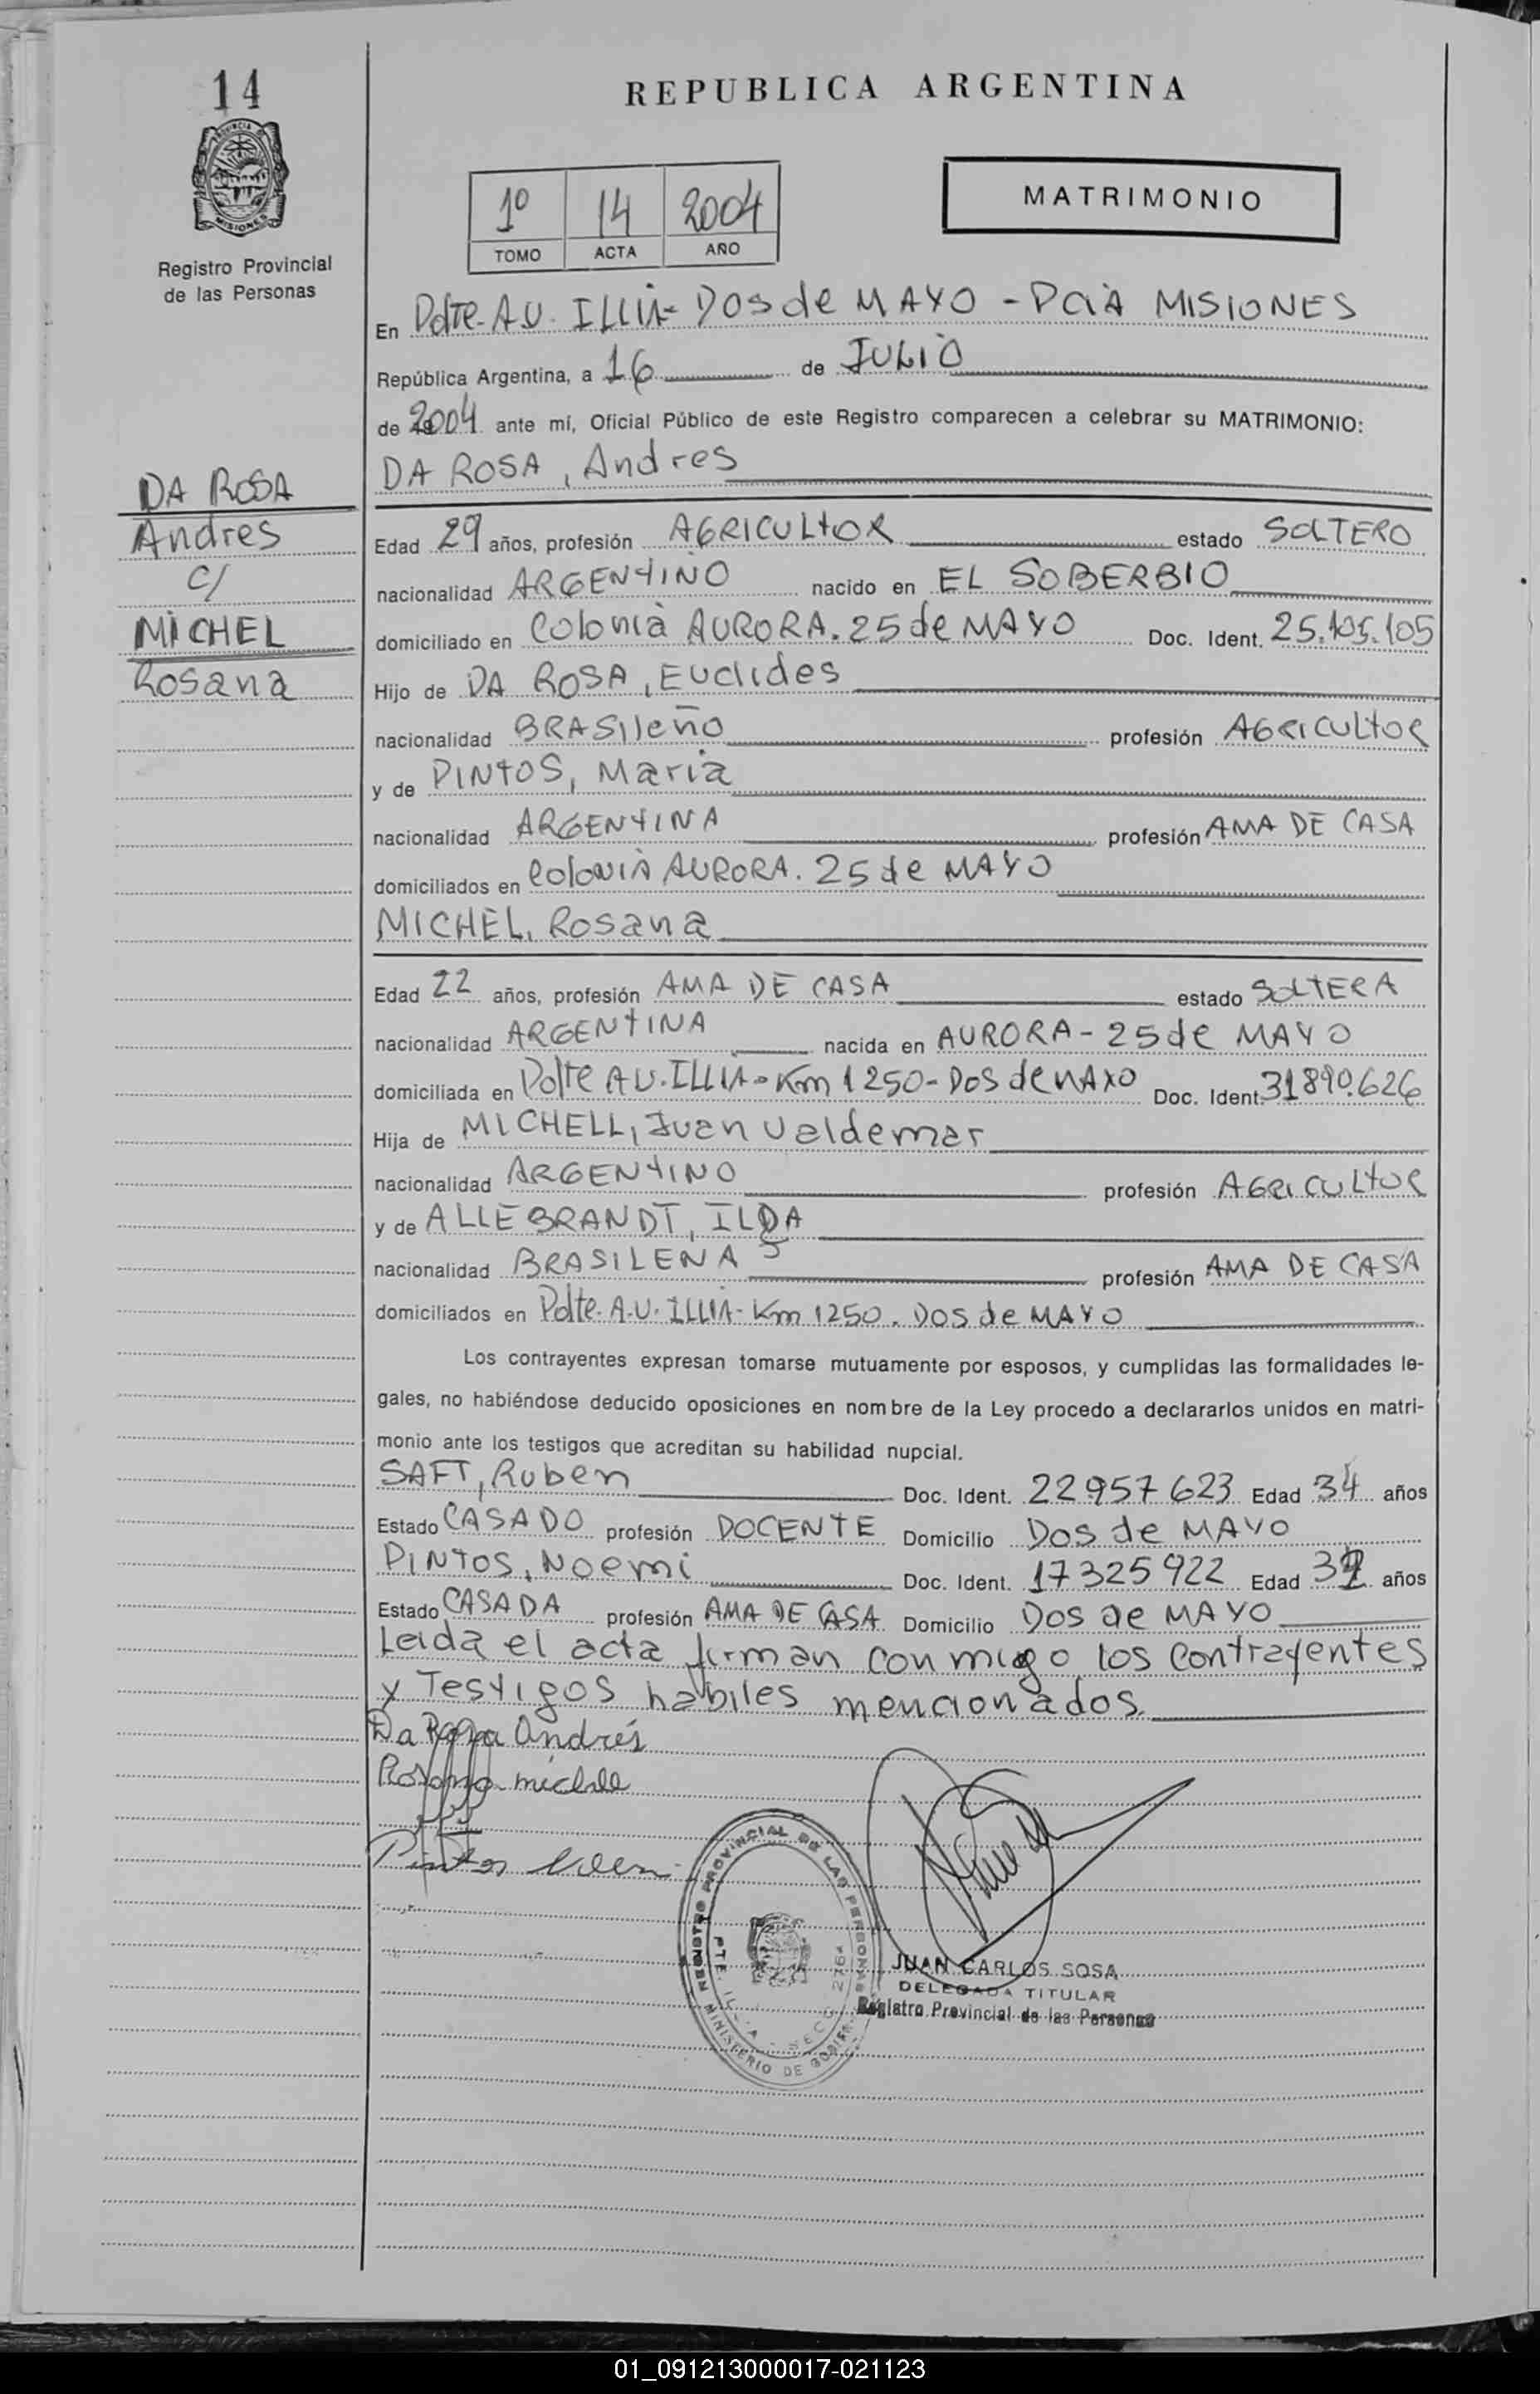 14
REPUBLICA ARGENTINA
PROVINCIA DE
MISIONES
Registro Provincial
de las Personas
1º 14 2004
TOMO ACTA AÑO
MATRIMONIO
En Pdte. A.U. ILLIA - DOS de MAYO - PCIA MISIONES
República Argentina, a 16 de JULIO
de 2004 ante mí, Oficial Público de este Registro comparecen a celebrar su MATRIMONIO:
DA ROSA, Andres
DA ROSA
Andres
c/
MICHEL
Rosana
Edad 29 años, profesión AGRICULTOR estado SOLTERO
nacionalidad ARGENTINO nacido en EL SOBERBIO
domiciliado en Colonia AURORA. 25 de MAYO Doc. Ident. 25.105.105
Hijo de DA ROSA, Euclides
nacionalidad BRASIleño profesión AGRICULTOR
y de PINTOS, Maria
nacionalidad ARGENTINA profesión AMA DE CASA
domiciliados en Colonia AURORA. 25 de MAYO
MICHEL, Rosana
Edad 22 años, profesión AMA DE CASA estado SOLTERA
nacionalidad ARGENTINA nacida en AURORA - 25 de MAYO
domiciliada en Pdte A.U. ILLIA - Km 1250 - DOS de MAYO Doc. Ident. 31890.626
Hija de MICHELL, Juan Valdemar
nacionalidad ARGENTINO profesión AGRICULTOR
y de ALLEBRANDT, ILDA
nacionalidad BRASILENA profesión AMA DE CASA
domiciliados en Pdte. A.U. ILLIA - Km 1250. DOS de MAYO
Los contrayentes expresan tomarse mutuamente por esposos, y cumplidas las formalidades le-
gales, no habiéndose deducido oposiciones en nombre de la Ley procedo a declararlos unidos en matri-
monio ante los testigos que acreditan su habilidad nupcial.
SAFT, Ruben Doc. Ident. 22957623 Edad 34 años
Estado CASADO profesión DOCENTE Domicilio DOS de MAYO
PINTOS, Noemi Doc. Ident. 17325922 Edad años
Estado CASADA profesión AMA DE CASA Domicilio DOS de MAYO
Leida el acta firman conmigo los contrayentes
y Testigos habiles mencionados.
Da Rosa Andrés
Rosana
Pintos Noemi
REGISTRO PROVINCIAL DE LAS PERSONAS
MINISTERIO DE
JUAN CARLOS SOSA
DELEGADA TITULAR
Registro Provincial de las Personas
01_091213000017-021123